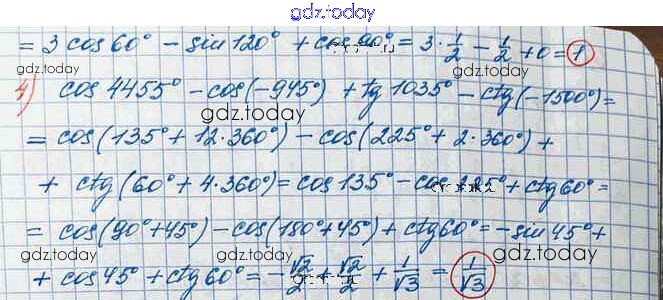 gdz.today
= 3 cos 60° - sin 120° + cos 90° = 3 · 1/2 - 1/2 + 0 = 1
gdz.today
4) cos 4455° - cos(-945°) + tg 1035° - ctg(-1500°) =
gdz.today
= cos(135° + 12·360°) - cos(225° + 2·360°) +
+ ctg(60° + 4·360°) = cos 135° - cos 225° + ctg 60° =
gdz.today
= cos(90°+45°) - cos(180°+45°) + ctg 60° = - sin 45° +
gdz.today
+ cos 45° + ctg 60° = - √2/2 + √2/2 + 1/√3 = 1/√3